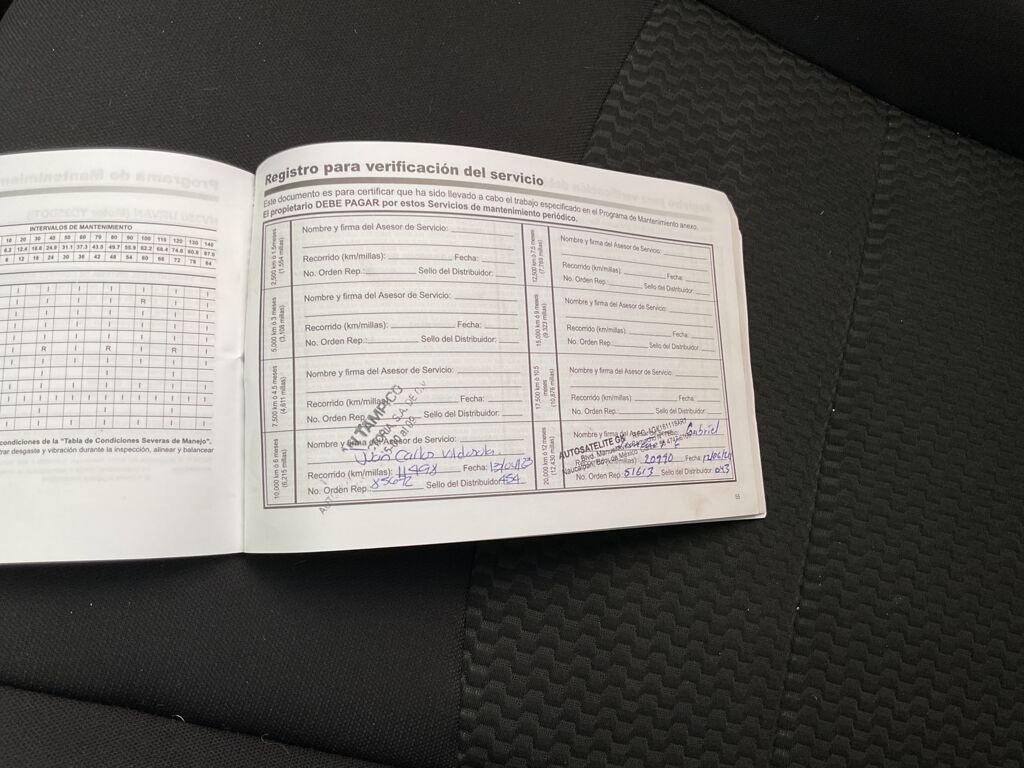 INTERVALOS DE MANTENIMIENTO
10 20 30 40 50 60 70 80 90 100 110 120 130 140
6.2 12.4 18.6 24.9 31.1 37.3 43.5 49.7 55.9 62.2 68.4 74.6 80.8 87.0
6 12 18 24 30 36 42 48 54 60 66 72 78 84
condiciones de la "Tabla de Condiciones Severas de Manejo".
rar desgaste y vibración durante la inspección, alinear y balancear
Registro para verificación del servicio
Este documento es para certificar que ha sido llevado a cabo el trabajo especificado en el Programa de Mantenimiento anexo.
El propietario DEBE PAGAR por estos Servicios de mantenimiento periódico.
2,500 km ó 1.5 meses
(1,554 millas)
Nombre y firma del Asesor de Servicio:
Recorrido (km/millas): Fecha:
No. Orden Rep.: Sello del Distribuidor:
5,000 km ó 3 meses
(3,108 millas)
Nombre y firma del Asesor de Servicio:
Recorrido (km/millas): Fecha:
No. Orden Rep.: Sello del Distribuidor:
7,500 km ó 4.5 meses
(4,611 millas)
Nombre y firma del Asesor de Servicio:
Recorrido (km/millas): Fecha:
No. Orden Rep. Sello del Distribuidor:
10,000 km ó 6 meses
(6,215 millas)
Nombre y firma del Asesor de Servicio:
Juan Carlos
Recorrido (km/millas): 11498 Fecha:
No. Orden Rep. Sello del Distribuidor: 454
TAMPICO
12,500 km ó 7.5 meses
(7,769 millas)
Nombre y firma del Asesor de Servicio:
Recorrido (km/millas): Fecha:
No. Orden Rep.: Sello del Distribuidor:
15,000 km ó 9 meses
(9,323 millas)
Nombre y firma del Asesor de Servicio:
Recorrido (km/millas): Fecha:
No. Orden Rep.: Sello del Distribuidor:
17,500 km ó 10.5
meses
(10,876 millas)
Nombre y firma del Asesor de Servicio:
Recorrido (km/millas): Fecha:
No. Orden Rep.: Sello del Distribuidor:
20,000 km ó 12 meses
(12,430 millas)
Nombre y firma del
Gabriel
AUTOSATELITE
Blvd. Manuel
Naucalpan, Edo. de México
20990 Fecha:
No. Orden Rep. 51613 Sello del Distribuidor: 043